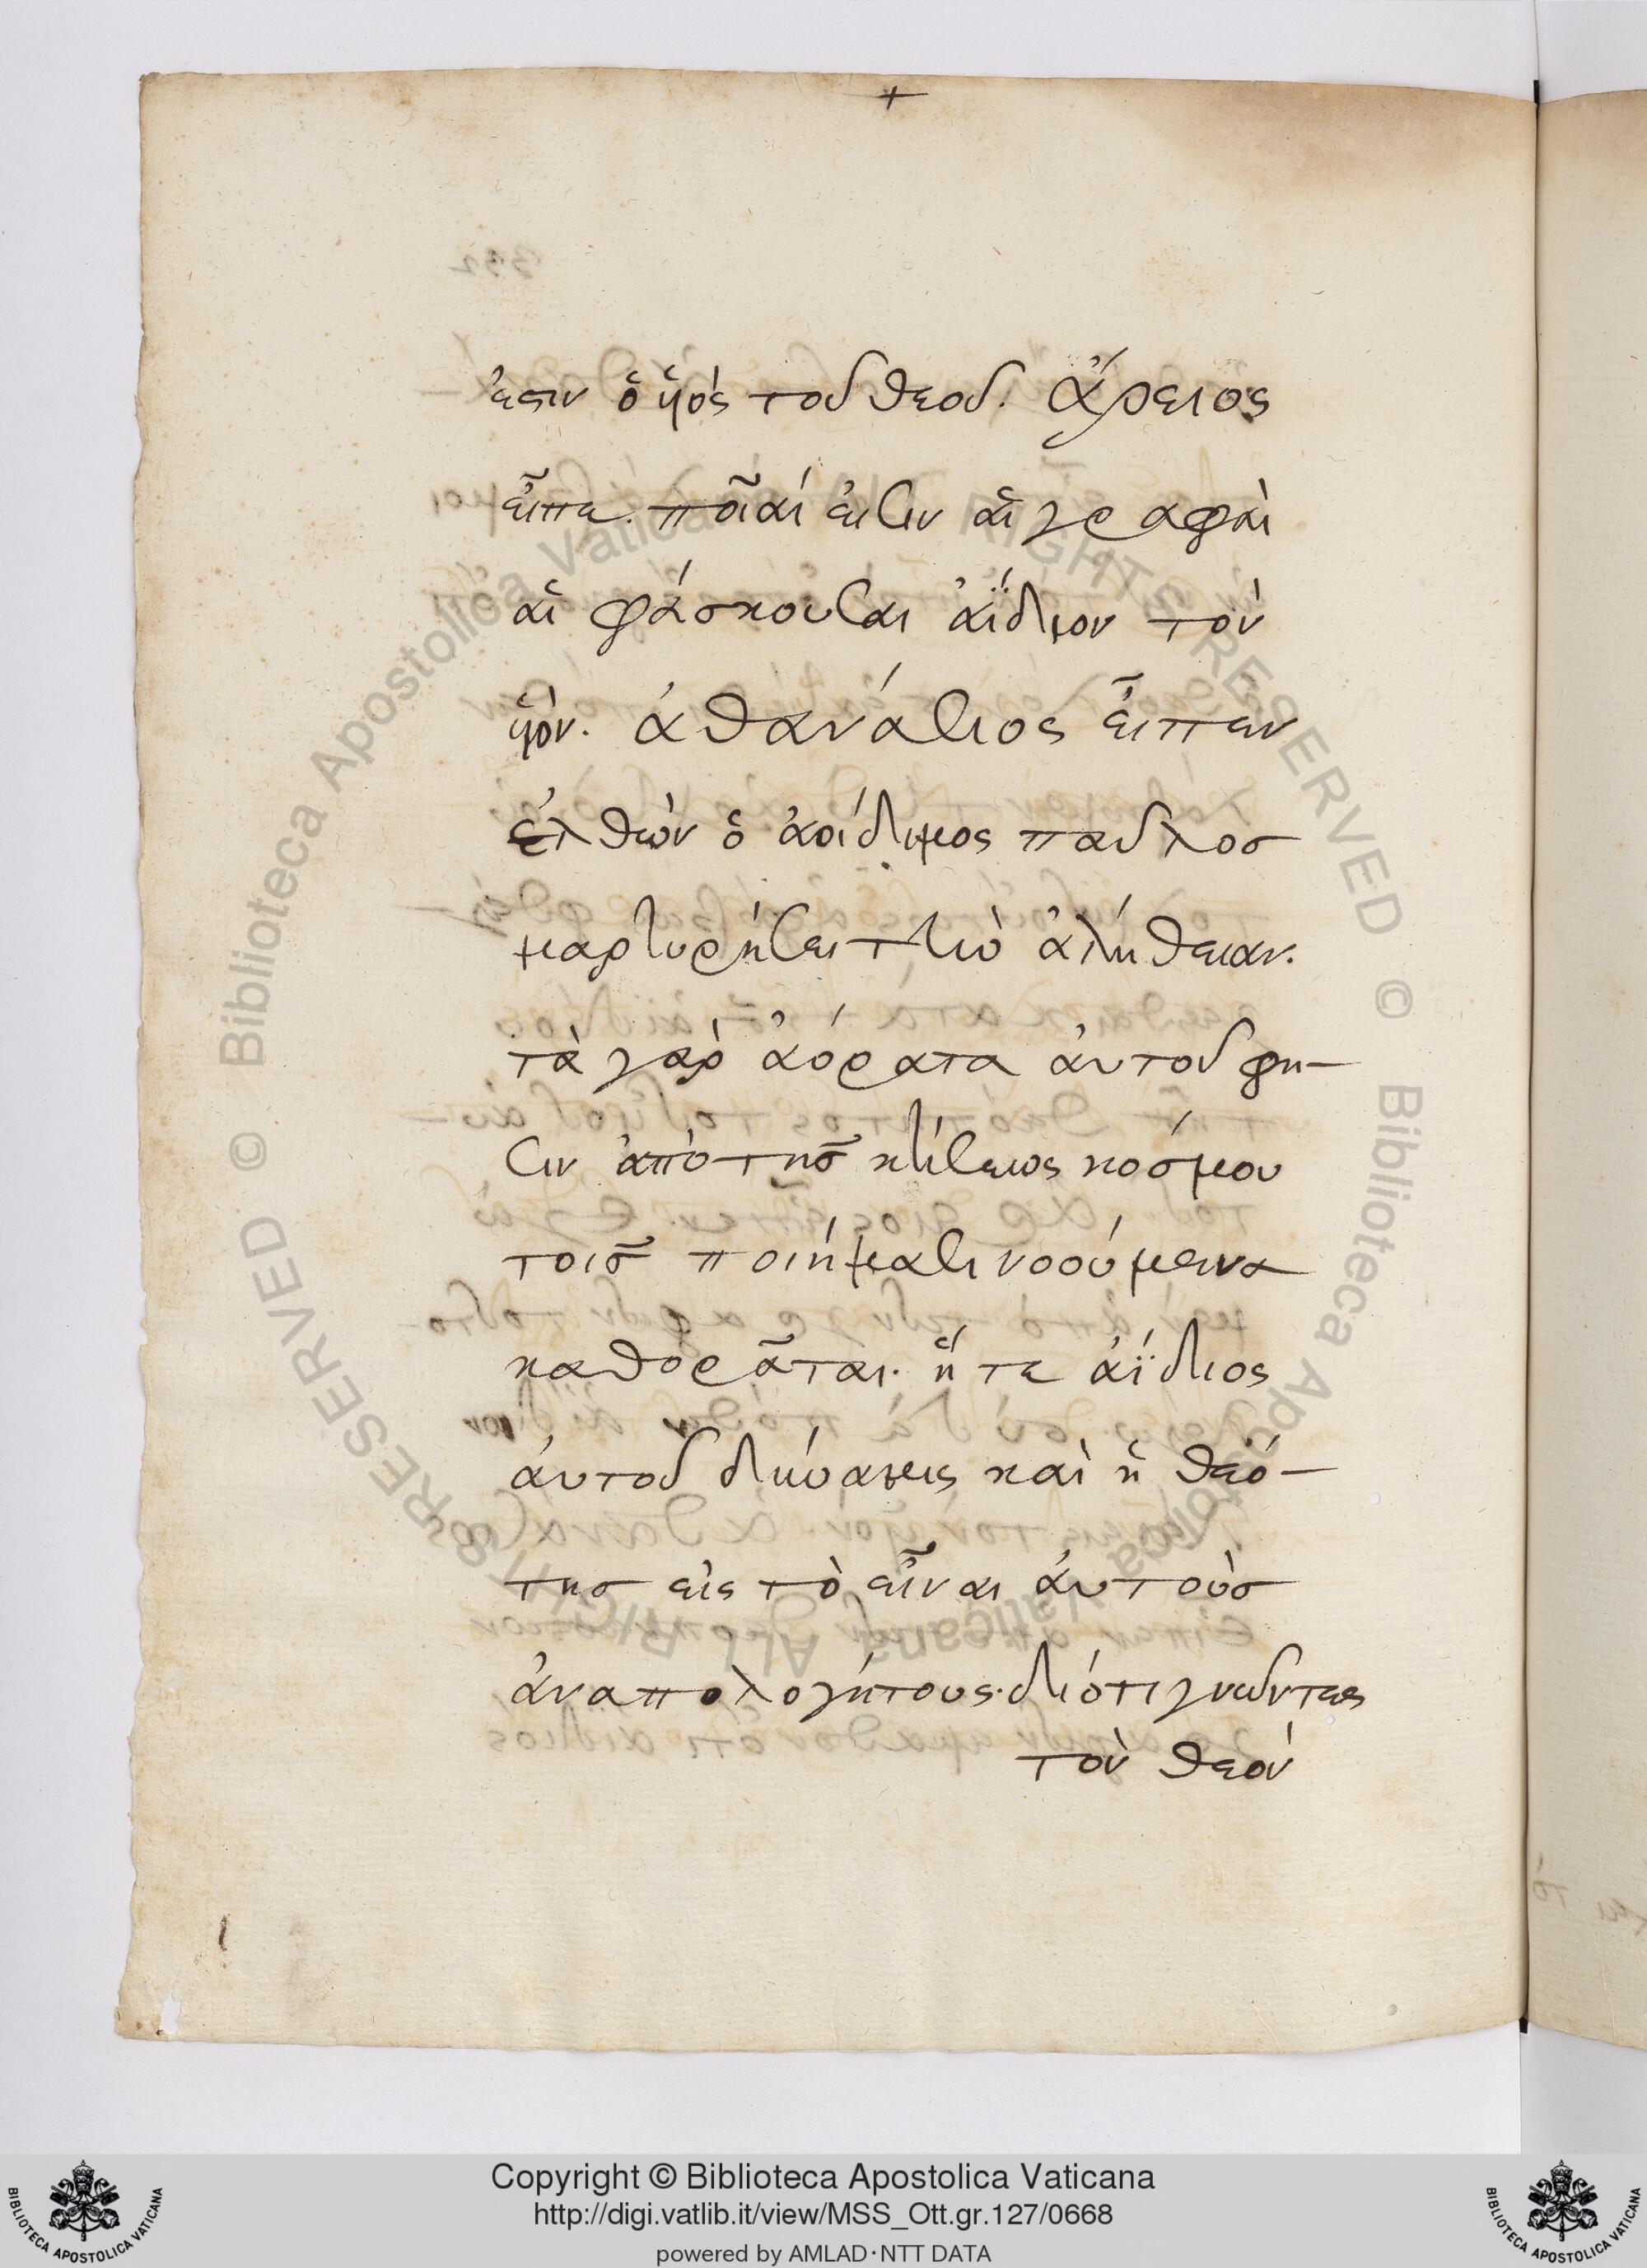 +
ἐστιν ὁ υἱὸς τοῦ θεοῦ. ἄρειος
εἶπε. ποῖαί εἰσιν αἱ γραφαὶ
αἱ φάσκουσαι ἀΐδιον τὸν
υἱὸν. ἀθανάσιος εἶπεν
ἐλθὼν ὁ ἀοίδιμος παῦλος
μαρτυρήσει τὴν ἀλήθειαν.
τὰ γὰρ ἀόρατα αὐτοῦ φη-
σιν ἀπὸ τῆς κτίσεως κόσμου
τοῖς ποιήμασι νοούμενα
καθορᾶται. ἥ τε ἀΐδιος
αὐτοῦ δύναμις καὶ ἡ θεό-
της εἰς τὸ εἶναι αὐτοὺς
ἀναπολογήτους. διότι γνῶντες
τὸν θεὸν
© Biblioteca Apostolica Vaticana ALL RIGHTS RESERVED © Biblioteca Apostolica Vaticana ALL RIGHTS RESERVED
BIBLIOTECA APOSTOLICA VATICANA
Copyright © Biblioteca Apostolica Vaticana
http://digi.vatlib.it/view/MSS_Ott.gr.127/0668
powered by AMLAD·NTT DATA
BIBLIOTECA APOSTOLICA VATICANA